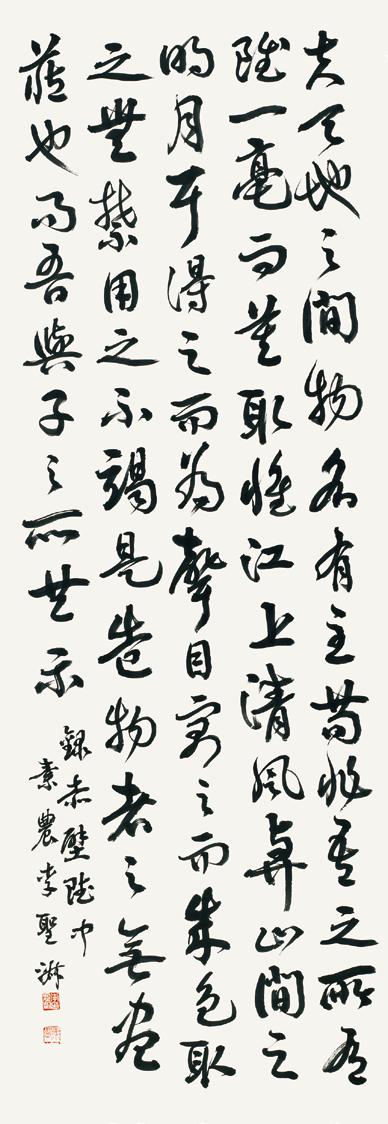 夫天地之間物各有主苟非吾之所有
雖一毫而莫取惟江上清風與山間之
明月耳得之而為聲目寓之而成色取
之無禁用之不竭是造物者之無盡
藏也而吾與子之所共
錄赤壁賦
素農李聖